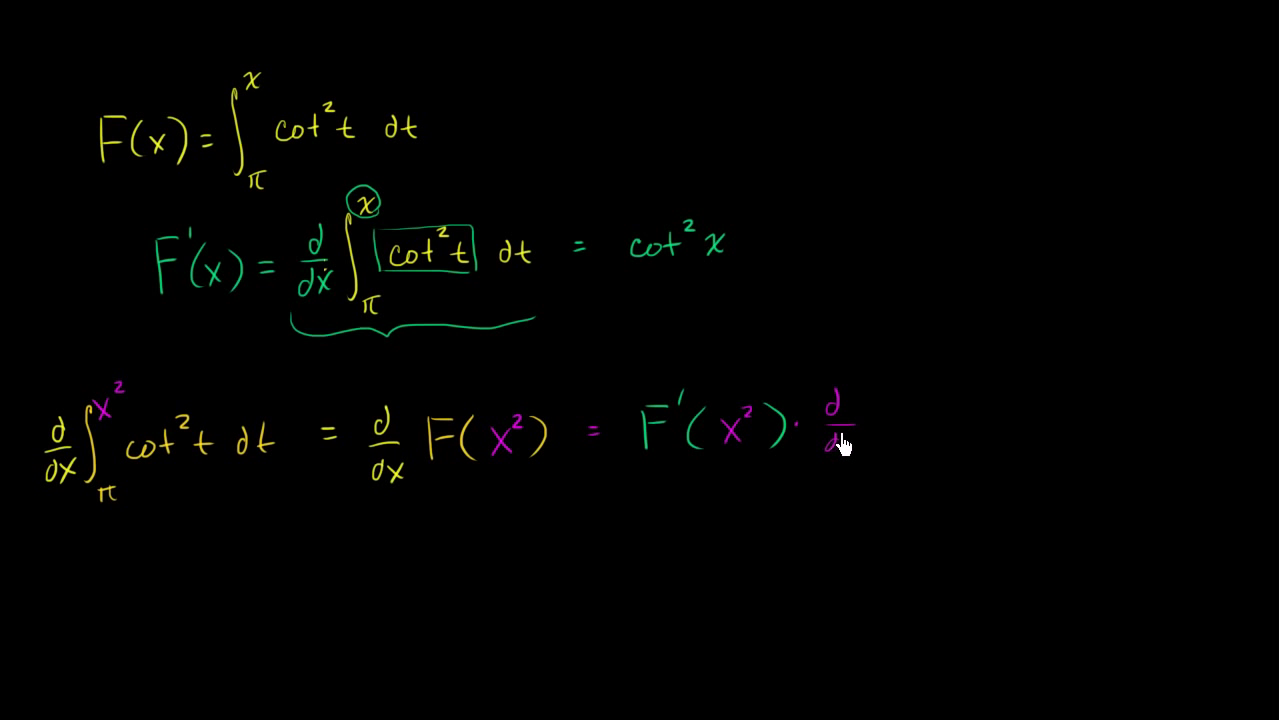 F(x) = ∫_π^x cot² t dt
F'(x) = d/dx ∫_π^x cot² t dt = cot² x
d/dx ∫_π^x² cot² t dt = d/dx F(x²) = F'(x²) · d/d